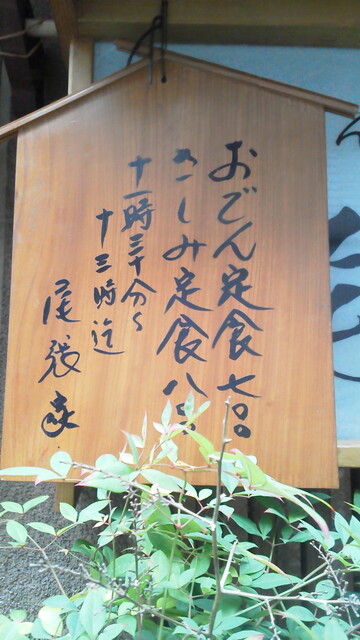 おでん定食七〇〇
さしみ定食八〇〇
十一時三十分〜
十三時迄
尾張家